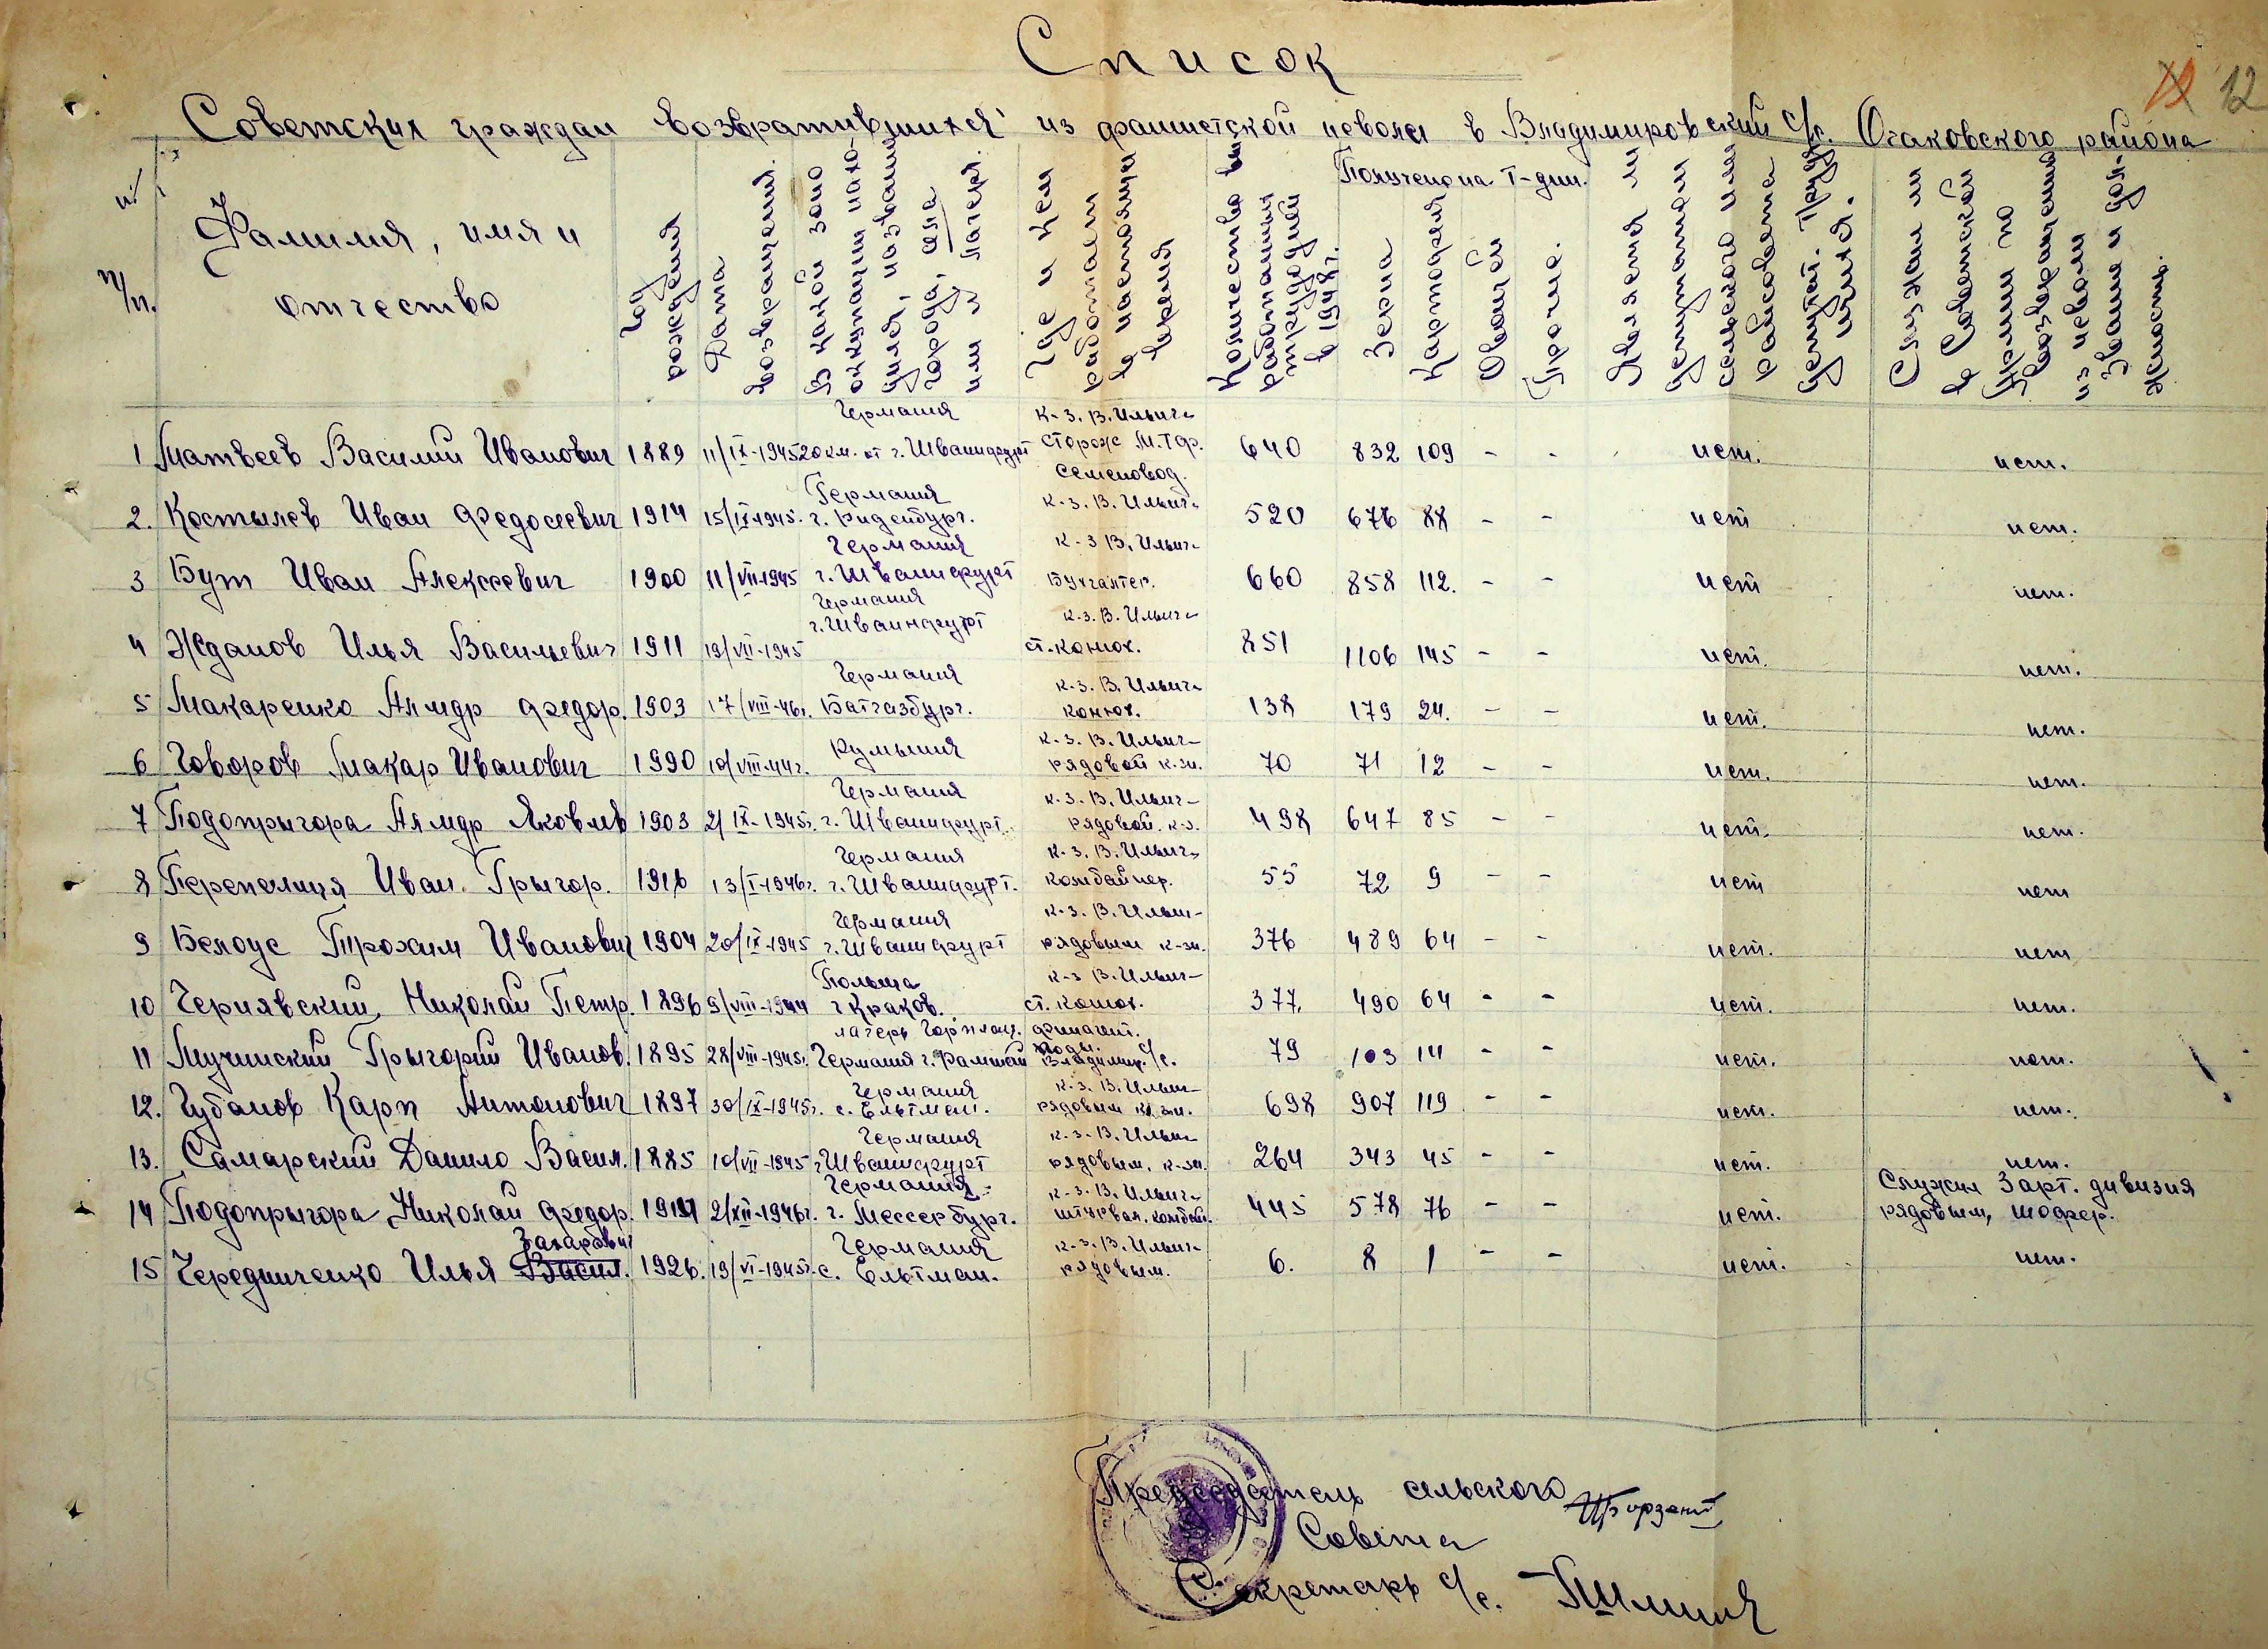 Список
12
Советских граждан возвратившихся из фашистской неволи в Владимировский с/с. Очаковского района
п/п.
Фамилия, имя и отчество
Год рождения
Дата возвращения.
В какой зоне оккупации находился, название города, села или лагеря.
Где и кем работает в настоящее время
Количество выработанных трудодней в 1948 г.
Получено на т-дни.
Зерна
Картофеля
Овощей
Прочие.
Является ли депутатом сельского или райсовета депутат. труд.
Служил ли в Советской Армии по возвращении из неволи звание и должность.
1 Матвеев Василий Иванович 1889 11/IX-1945 Германия 20 км. от г. Швайнфурт к-з. В. Ильича сторож М.Т.Ф. 640 832 109 - - нет. нет.
2. Костылев Иван Федосеевич 1914 15/IX-1945. Германия г. Риденбург. семеновод. к-з. В. Ильича 520 676 88 - - нет нет.
3 Бут Иван Алексеевич 1900 11/VII-1945 Германия г. Швайнфурт к-з В. Ильича Бухгалтер. 660 858 112. - - нет нет.
4 Жданов Илья Васильевич 1911 19/VII-1945 Германия г. Швайнфурт к-з. В. Ильича ст. конюх. 851 1106 145 - - нет. нет.
5 Макаренко Ал-мдр Федор. 1903 17/VIII-46г. Германия Батгазбург. к-з. В. Ильича конюх. 138 179 24. - - нет. нет.
6 Говоров Макар Иванович 1990 10/VIII-44г. Румыния к-з. В. Ильич- рядовой к-зн. 70 71 12 - - нет. нет.
7 Подопрыгора Ал-мдр Яковлев 1903 2/IX-1945г. Германия г. Швайнфурт. к-з. В. Ильич- рядовой. к-з. 498 647 85 - - нет. нет.
8 Перепелиця Иван Грыгор. 1916 13/I-1946г. Германия г. Швайнфурт. к-з. В. Ильича комбайнер. 55 72 9 - - нет нет
9 Белоус Трохим Иванович 1904 20/IX-1945 Германия г. Швайнфурт к-з. В. Ильич- рядовым к-зн. 376 489 64 - - нет. нет
10 Чернявский Николай Петр. 1896 9/VIII-1944 Польша г Краков. к-з В. Ильич- ст. конюх. 377. 490 64 - - нет. нет.
11 Мучинский Грыгорий Иванов. 1895 28/VIII-1945г. лагерь Германия г. финагент. Владимир. с/с. 79 103 14 - - нет. нет.
12. Губанов Карп Антонович 1897 30/IX-1945г. Германия с. Ельтман. к-з. В. Ильич- рядовым к-зн. 698 907 119 - - нет. нет.
13. Самарский Данило Васил. 1885 10/VII-1945 Германия г. Швайнфурт к-з. В. Ильич- рядовым, к-зн. 264 343 45 - - нет. нет.
14 Подопрыгора Николай Федор. 2/XII-1946г. Германия г. Мессербург. к-з. В. Ильича штурвал. комбай. 445 578 76 - - нет. Служил 3 арт. дивизия рядовым, шофер.
15 Чередниченко Илья Захарович Васил. 1926. 19/VI-1945г. Германия с. Ельтман. к-з. В. Ильича рядовым. 6. 8 1 - - нет. нет.
Председатель сельского
Совета
Секретарь с/с.